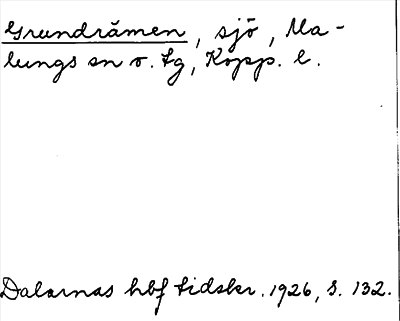 Grundrämen, sjö, Ma-
lungs sn o. tg, Kopp. l.
Dalarnas hbf tidskr. 1926, s. 132.